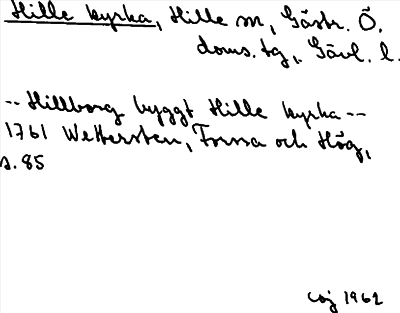 Hille kyrka, Hille sn, Gästr. Ö.
doms. tg, Gävl. l.
-- Hillborg byggt Hille kyrka --
1761 Wettersten, Forssa och Hög,
s. 85
1962